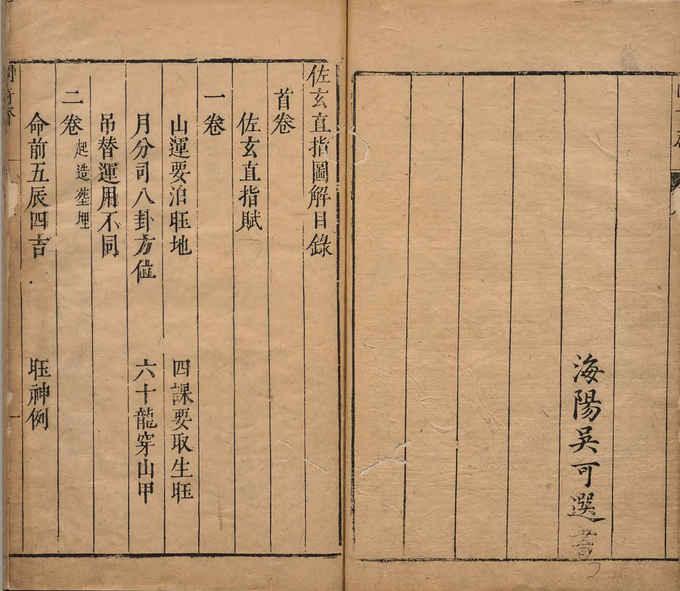 海陽吳可選書
佐玄直指圖解目錄
首卷
佐玄直指賦
一卷
山運要泊旺地　四課要取生旺
月分司八卦方位　六十龍穿山甲
吊替運用不同
二卷 起造塟埋
命前五辰四吉　旺神例
一